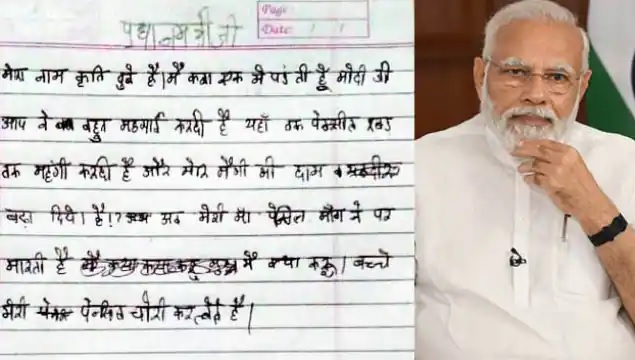 Page:
Date: / /
पुधानमत्री जी
मेरा नाम कृति दुबे है। मै कक्षा एक मे पढ़ती हूँ मोदी जी
आप ने बहुत महगाई करदी है यहाँ तक पेन्सील रबड
तक महंगी करदी है और मेरि मैगी की दाम
बढ़ा दिये। है।? अब मेरी मा पेंसिल माँग ने पर
मारती है मै क्या करू। बच्चे
मेरी पेन्सिल चोरी कर लेते है।